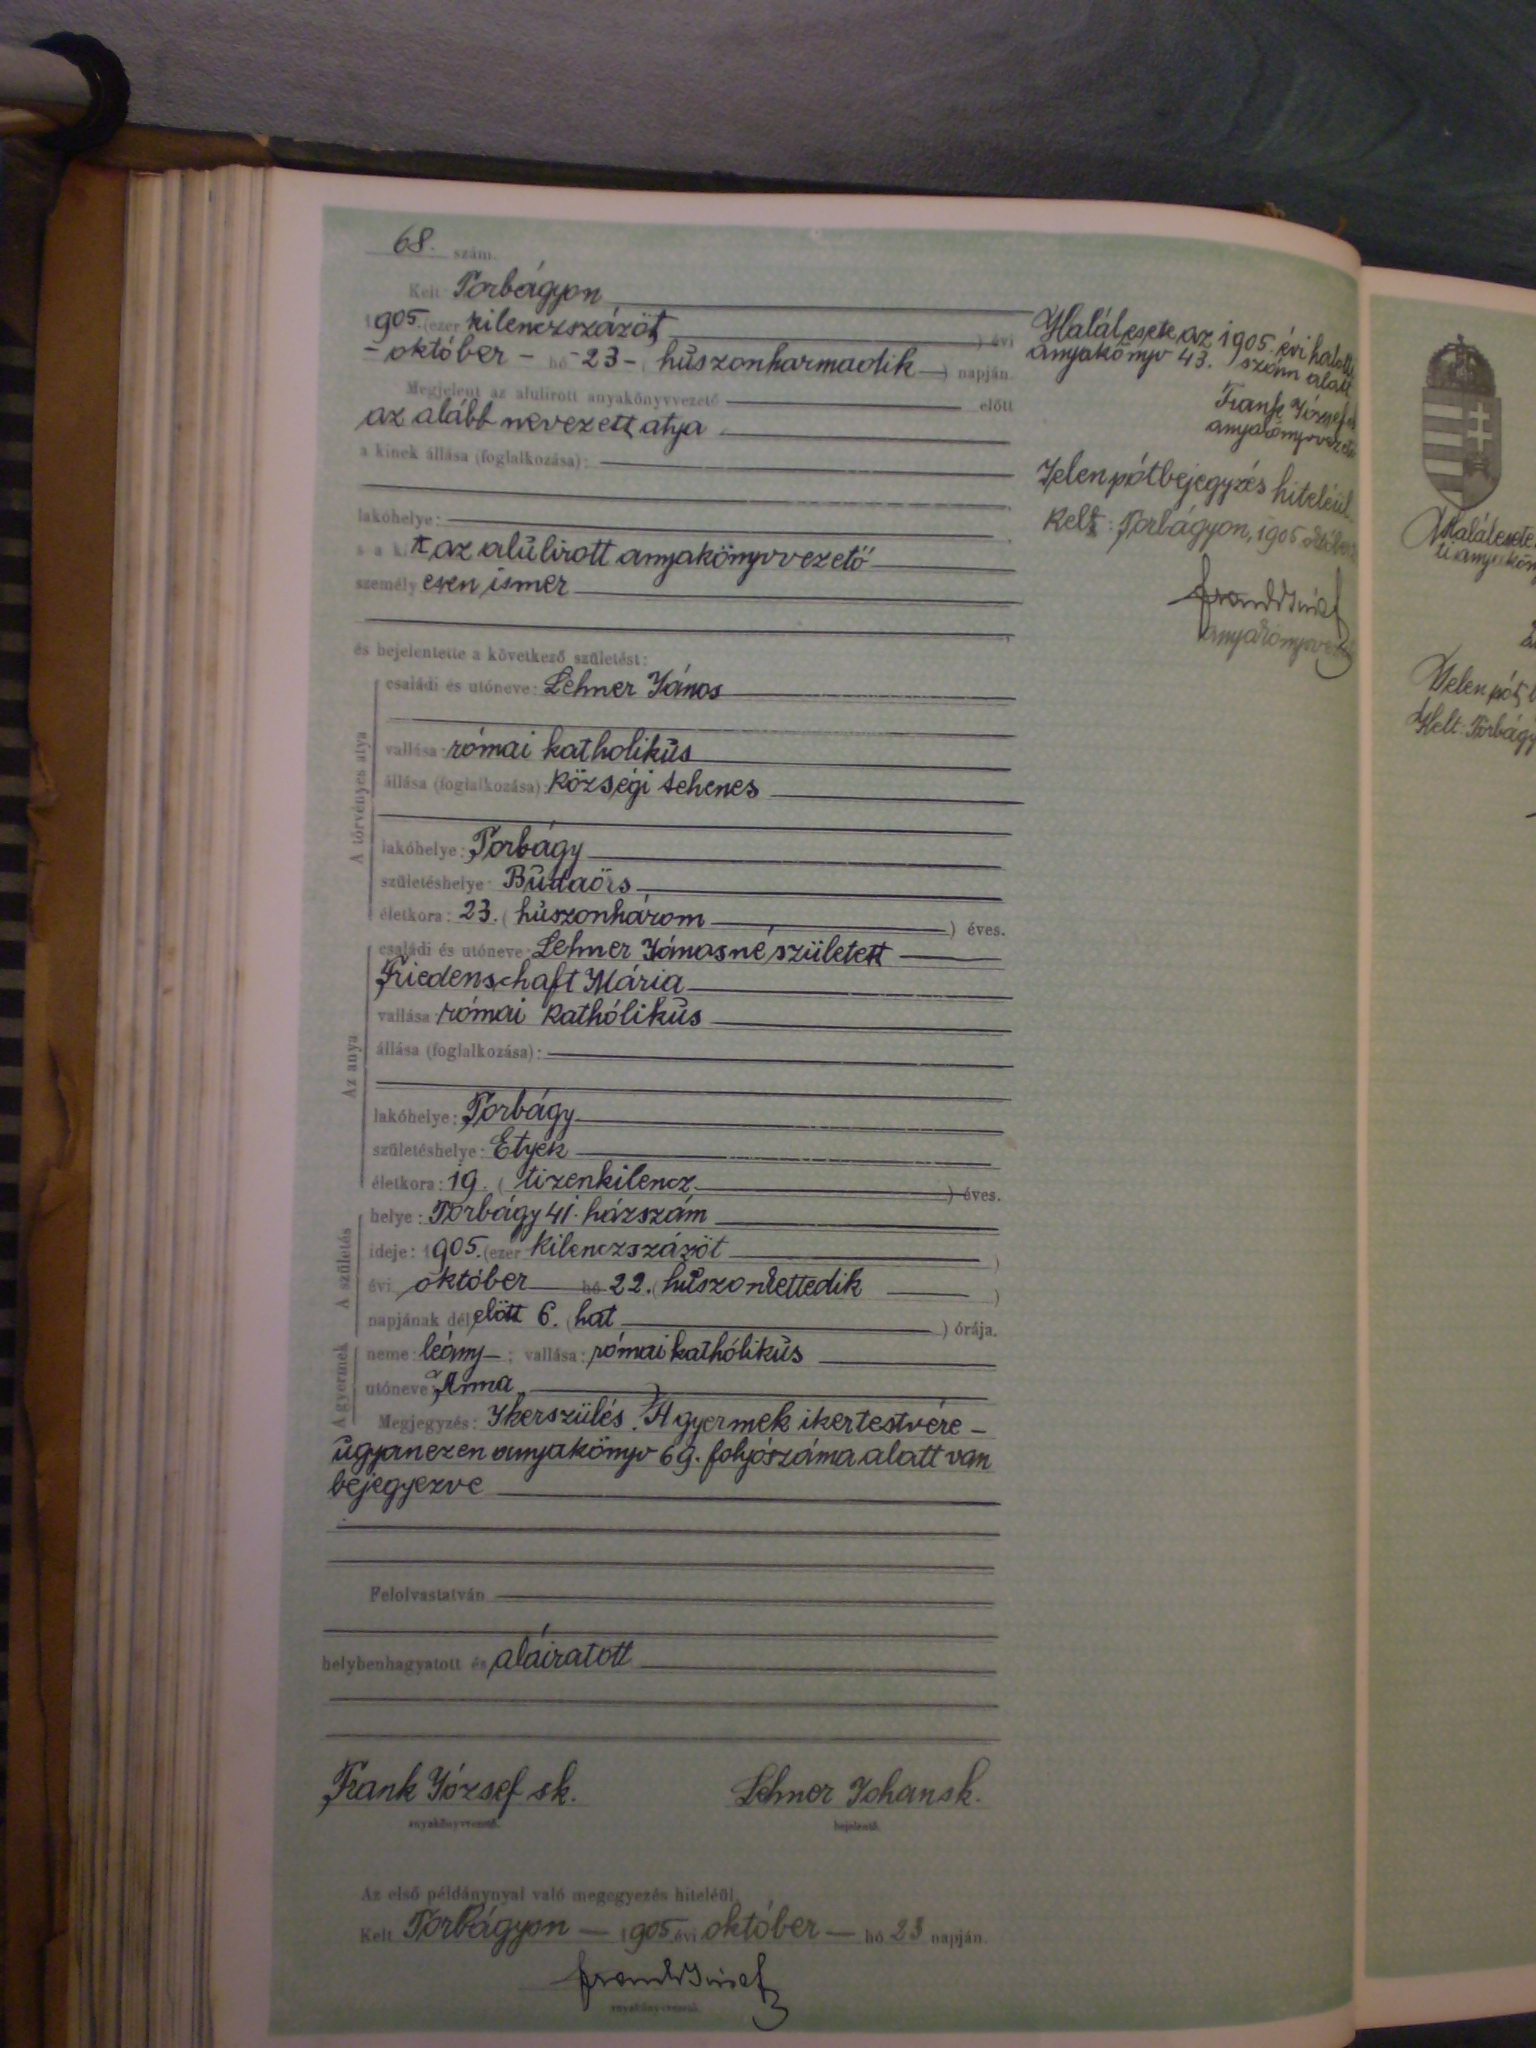 68. szám.
Kelt Torbágyon
1905. (ezer kilenczszázöt ) évi
- október - hó - 23 - ( huszonharmadik ) napján.
Megjelent az alulirott anyakönyvvezető előtt
az alább nevezett atya
a kinek állása (foglalkozása):
lakóhelye:
s a kit az alulirott anyakönyvvezető
személyesen ismer
és bejelentette a következő születést:
A törvényes atya
családi és utóneve: Lehner János
vallása: római katholikus
állása (foglalkozása): községi tehenes
lakóhelye: Torbágy
születéshelye: Budaörs
életkora: 23. ( huszonhárom ) éves.
Az anya
családi és utóneve: Lehner Jánosné született
Friedenschaft Mária
vallása: római kathólikus
állása (foglalkozása):
lakóhelye: Torbágy
születéshelye: Etyek
életkora: 19. ( tizenkilencz ) éves.
A születés
helye: Torbágy 41. házszám
ideje: 1905. (ezer kilenczszázöt )
évi október hó 22. ( huszonkettedik )
napjának délelőtt 6. ( hat ) órája.
A gyermek
neme: leány ; vallása: római kathólikus
utóneve: Anna
Megjegyzés: Ikerszülés. A gyermek ikertestvére -
ugyanezen anyakönyv 69. folyószáma alatt van
bejegyezve
Felolvastatván
helybenhagyatott és aláiratott
Frank József sk. Lehner Johan sk.
anyakönyvvezető. bejelentő.
Az első példánynyal való megegyezés hiteléül.
Kelt Torbágyon - 1905 évi október - hó 23 napján.
Frank József
anyakönyvvezető.
Halálesete az 1905. évi halotti
anyakönyv 43. szám alatt
Frank József sk
anyakönyvvezető
Jelen pótbejegyzés hiteléül.
Kelt: Torbágyon, 1905 október
Frank József
anyakönyvvezető
Halálesete
ti anyakön
Jelen pótb
Kelt: Torbágy